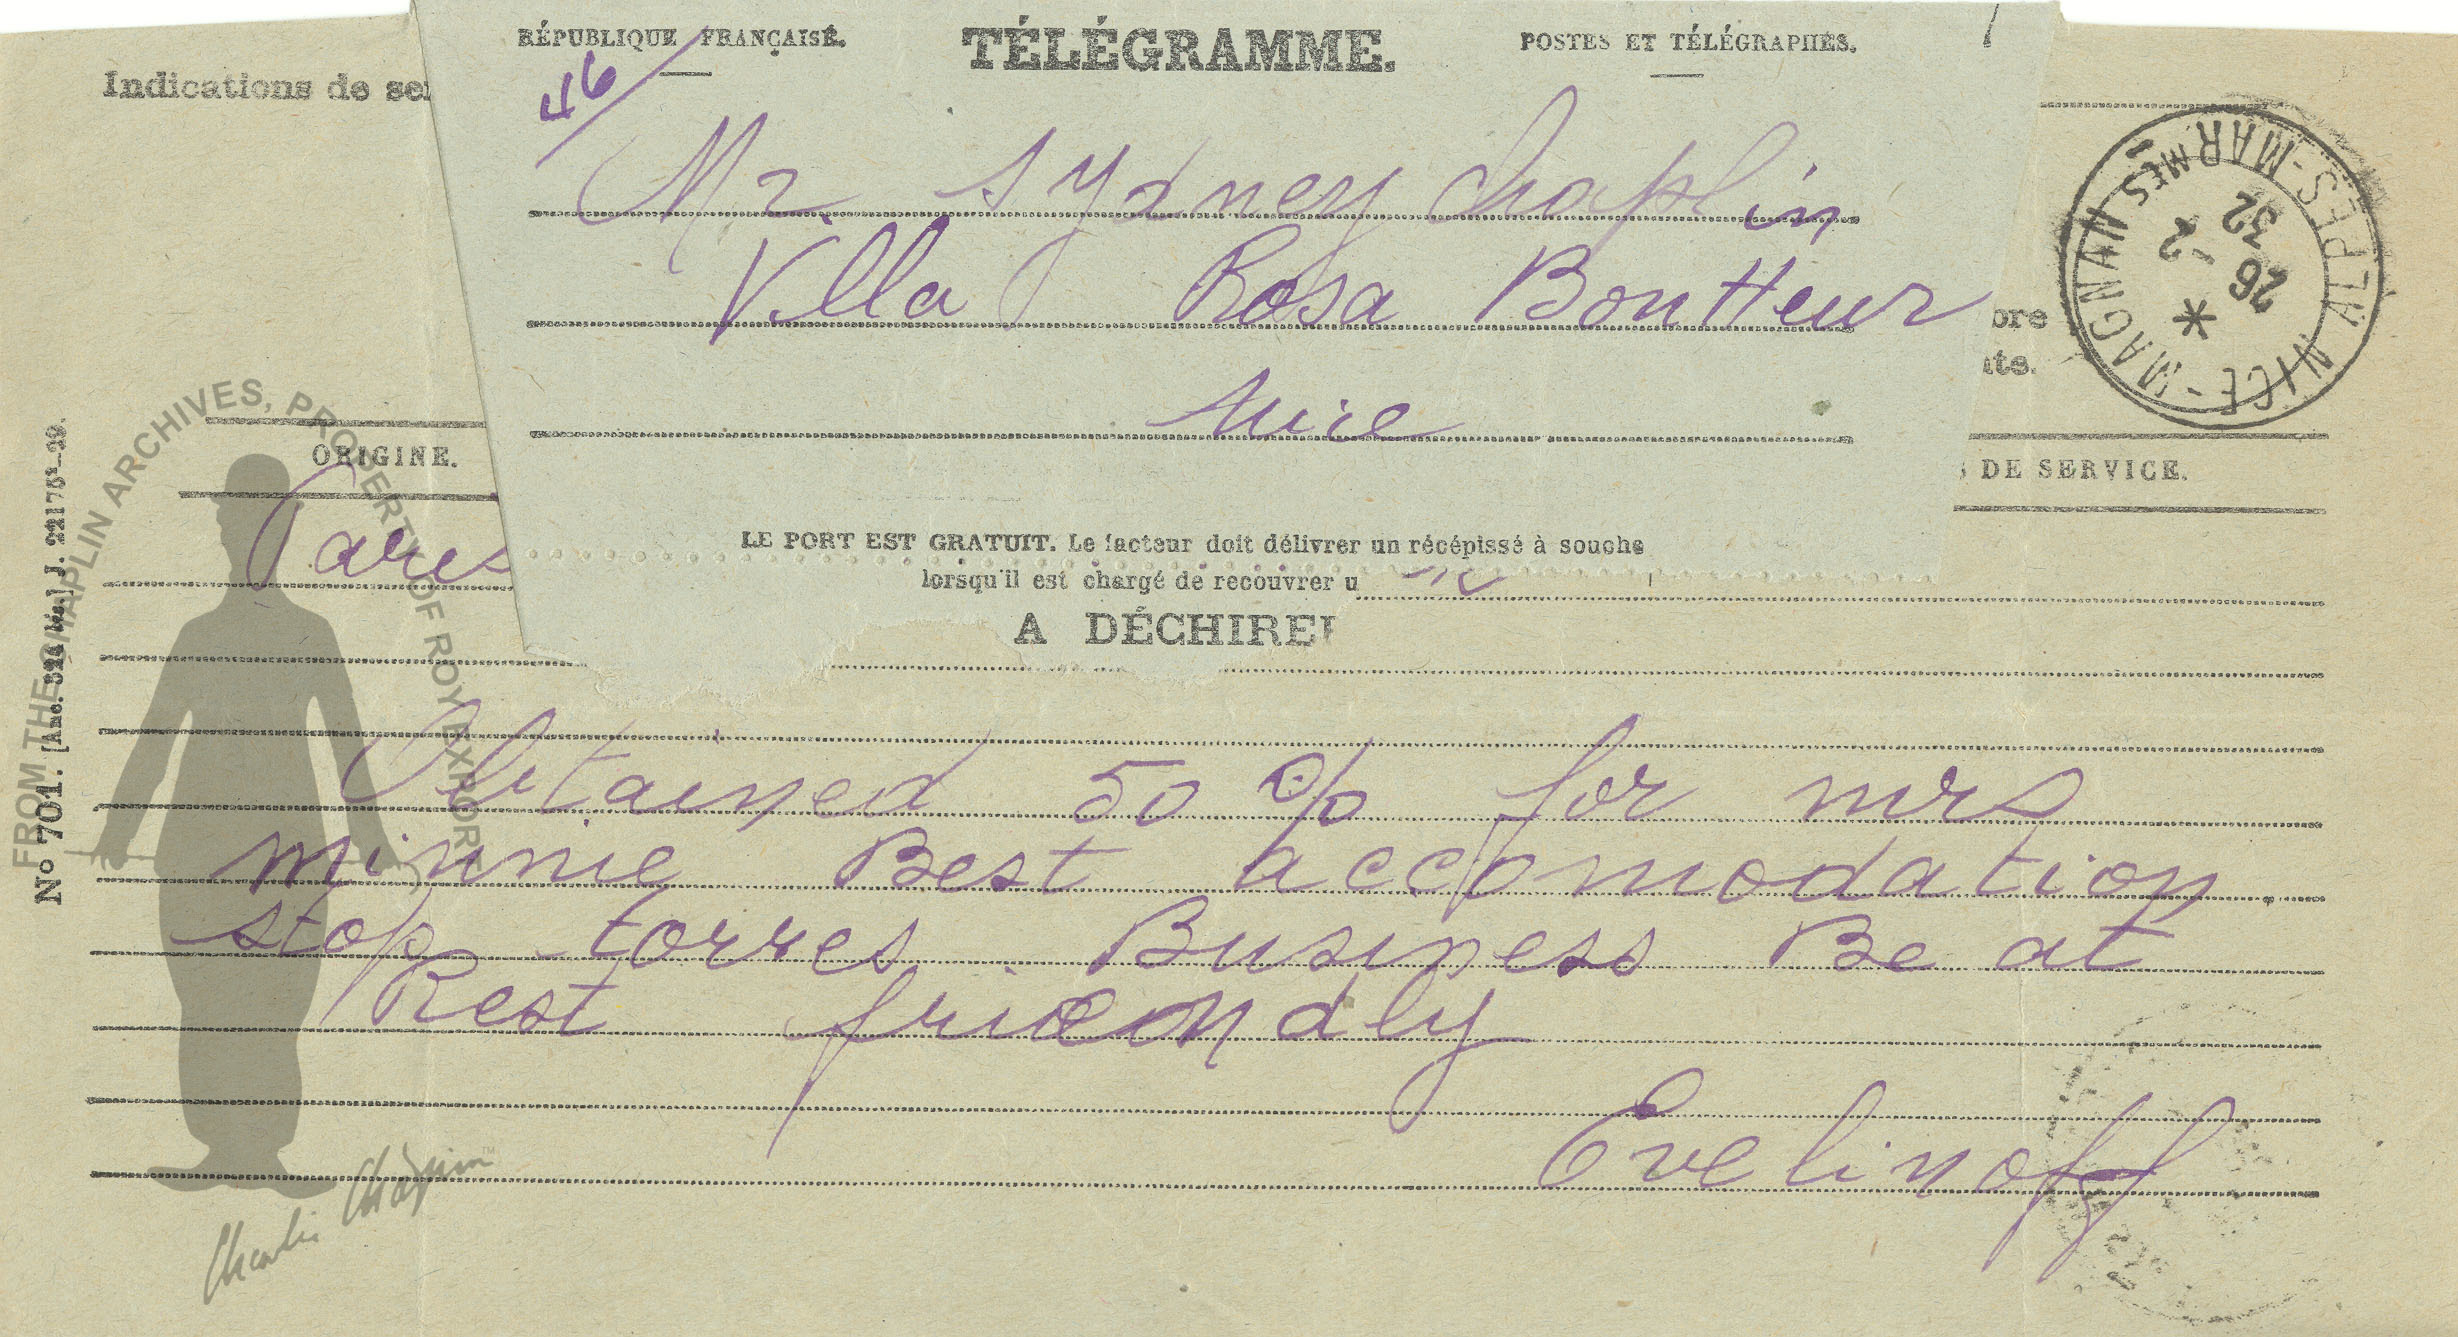 RÉPUBLIQUE FRANÇAISE. TÉLÉGRAMME. POSTES ET TÉLÉGRAPHES.
Indications de ser
46
Mr. Sydney Chaplin
Villa Rosa Bonheur
Nice
NICE-MAGNAN ALPES-MARMES
26 - 2
32
ore
ts.
ORIGINE.
DE SERVICE.
Paris
LE PORT EST GRATUIT. Le facteur doit délivrer un récépissé à souche
lorsqu'il est chargé de recouvrer u
A DÉCHIRER
Obtained 50 % for mrs
minnie Best accomodation
stop torres Business Be at
Rest friendly
Evelinoff
FROM THE CHAPLIN ARCHIVES, PROPERTY OF ROY EXPORT
Charlie Chaplin™